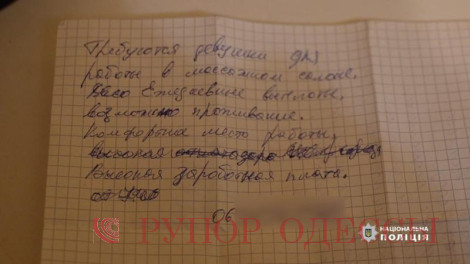 Требуются девушки для
работы в массажном салоне.
Ежедневные выплаты.
возможно проживание.
Комфортно место работы,
высокая
Высокая заработная плата.
06
РУПОР ОДЕССЫ
НАЦІОНАЛЬНА
ПОЛІЦІЯ